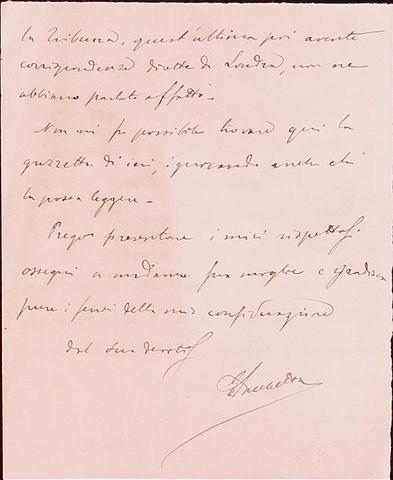 la Tribuna, quest'ultima poi avente
corrispondenze dirette da Londra, non ne
abbiano parlato affatto.
Non mi fu possibile trovare qui la
gazzetta di ieri, ignorando anche chi
la possa leggere.
Prego presentare i miei rispettosi
ossequi a madama sua moglie e gradisca
pure i sensi della mia considerazione
dal suo devot.